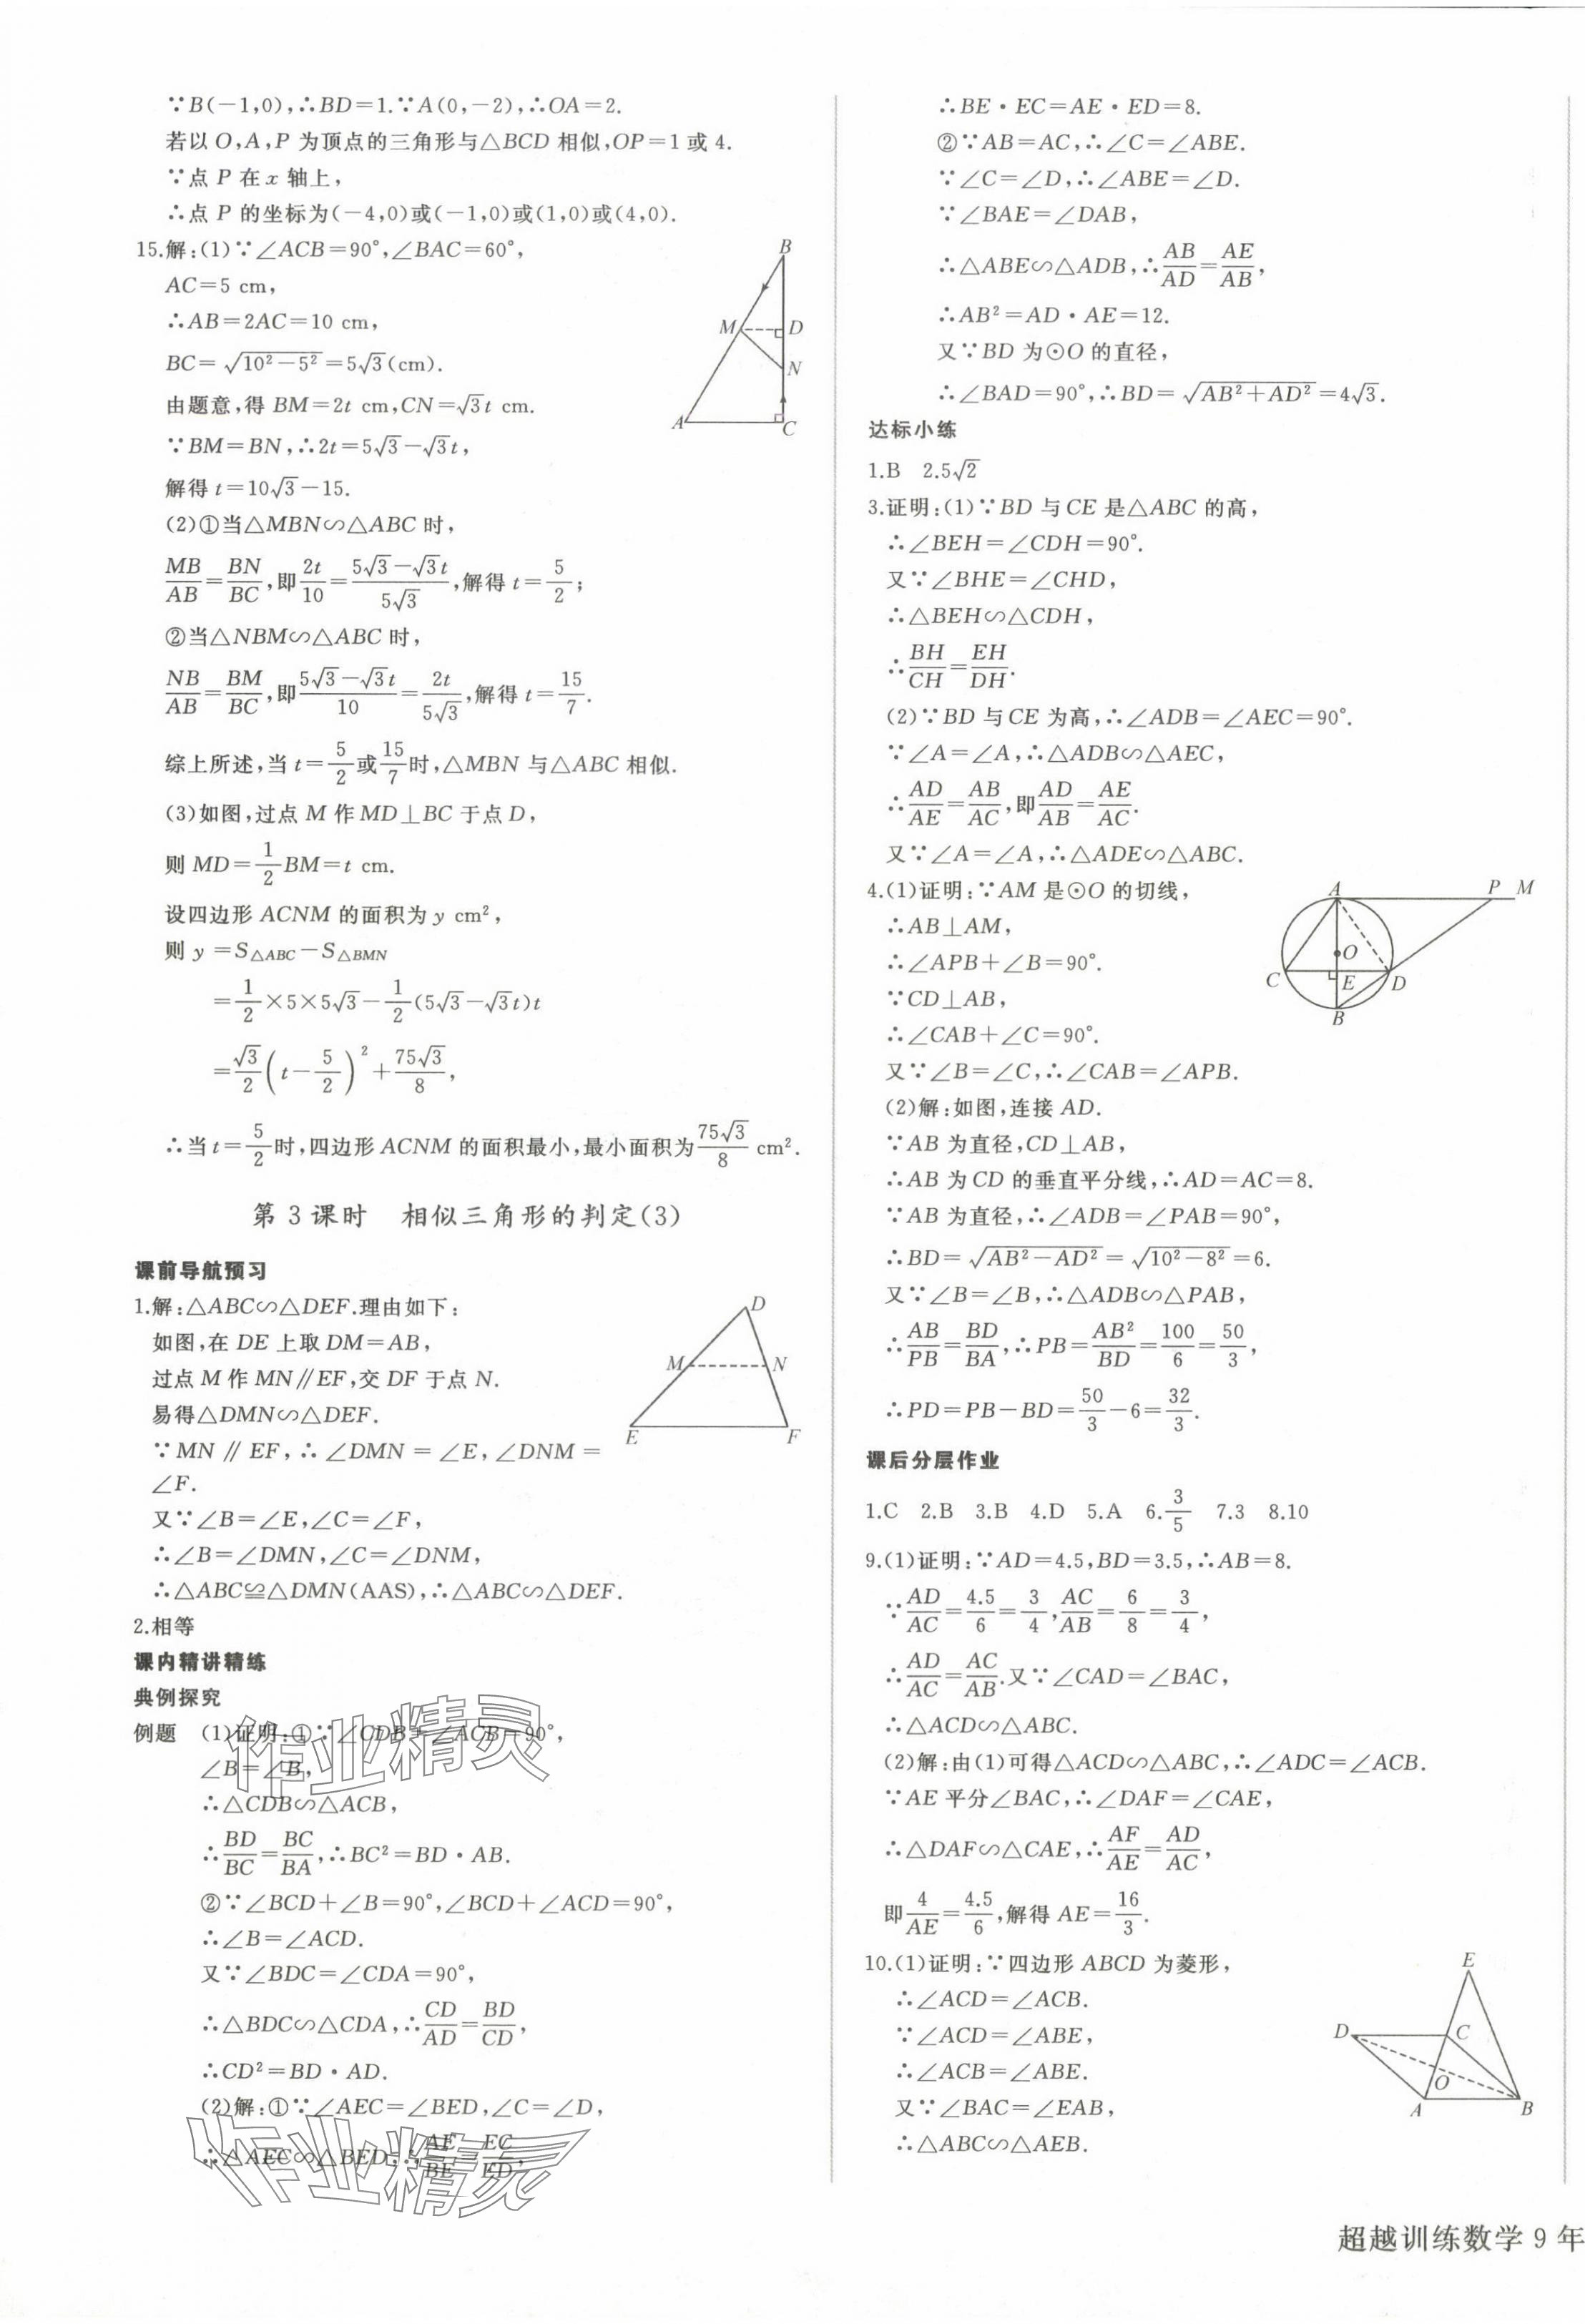 ∵B(－1,0),∴BD＝1.∵A(0,－2),∴OA＝2.
若以O,A,P为顶点的三角形与△BCD相似,OP＝1或4.
∵点P在x轴上,
∴点P的坐标为(－4,0)或(－1,0)或(1,0)或(4,0).
15.解:(1)∵∠ACB＝90°,∠BAC＝60°,
AC＝5 cm,
∴AB＝2AC＝10 cm,
BC＝√(10²－5²)＝5√3(cm).
由题意,得BM＝2t cm,CN＝√3t cm.
∵BM＝BN,∴2t＝5√3－√3t,
解得t＝10√3－15.
(2)①当△MBN∽△ABC时,
MB/AB＝BN/BC,即2t/10＝(5√3－√3t)/(5√3),解得t＝5/2;
②当△NBM∽△ABC时,
NB/AB＝BM/BC,即(5√3－√3t)/10＝2t/(5√3),解得t＝15/7.
综上所述,当t＝5/2或15/7时,△MBN与△ABC相似.
(3)如图,过点M作MD⊥BC于点D,
则MD＝1/2BM＝t cm.
设四边形ACNM的面积为y cm²,
则y＝S△ABC－S△BMN
＝1/2×5×5√3－1/2(5√3－√3t)t
＝√3/2(t－5/2)²＋75√3/8,
∴当t＝5/2时,四边形ACNM的面积最小,最小面积为75√3/8 cm².
B
M
D
N
A
C
第3课时 相似三角形的判定(3)
课前导航预习
1.解:△ABC∽△DEF.理由如下:
如图,在DE上取DM＝AB,
过点M作MN∥EF,交DF于点N.
易得△DMN∽△DEF.
∵MN∥EF,∴∠DMN＝∠E,∠DNM＝
∠F.
又∵∠B＝∠E,∠C＝∠F,
∴∠B＝∠DMN,∠C＝∠DNM,
∴△ABC≌△DMN(AAS),∴△ABC∽△DEF.
D
M
N
E
F
2.相等
课内精讲精练
典例探究
例题 (1)证明:①∵∠CDB＝∠ACB＝90°,
∠B＝∠B,
∴△CDB∽△ACB,
∴BD/BC＝BC/BA,∴BC²＝BD·AB.
②∵∠BCD＋∠B＝90°,∠BCD＋∠ACD＝90°,
∴∠B＝∠ACD.
又∵∠BDC＝∠CDA＝90°,
∴△BDC∽△CDA,∴CD/AD＝BD/CD,
∴CD²＝BD·AD.
(2)解:①∵∠AEC＝∠BED,∠C＝∠D,
∴△AEC∽△BED,∴AE/BE＝EC/ED,
作业精灵
作业精灵
∴BE·EC＝AE·ED＝8.
②∵AB＝AC,∴∠C＝∠ABE.
∵∠C＝∠D,∴∠ABE＝∠D.
∵∠BAE＝∠DAB,
∴△ABE∽△ADB,∴AB/AD＝AE/AB,
∴AB²＝AD·AE＝12.
又∵BD为⊙O的直径,
∴∠BAD＝90°,∴BD＝√(AB²＋AD²)＝4√3.
达标小练
1.B 2.5√2
3.证明:(1)∵BD与CE是△ABC的高,
∴∠BEH＝∠CDH＝90°.
又∵∠BHE＝∠CHD,
∴△BEH∽△CDH,
∴BH/CH＝EH/DH.
(2)∵BD与CE为高,∴∠ADB＝∠AEC＝90°.
∵∠A＝∠A,∴△ADB∽△AEC,
∴AD/AE＝AB/AC,即AD/AB＝AE/AC.
又∵∠A＝∠A,∴△ADE∽△ABC.
4.(1)证明:∵AM是⊙O的切线,
∴AB⊥AM,
∴∠APB＋∠B＝90°.
∵CD⊥AB,
∴∠CAB＋∠C＝90°.
又∵∠B＝∠C,∴∠CAB＝∠APB.
(2)解:如图,连接AD.
∵AB为直径,CD⊥AB,
∴AB为CD的垂直平分线,∴AD＝AC＝8.
∵AB为直径,∴∠ADB＝∠PAB＝90°,
∴BD＝√(AB²－AD²)＝√(10²－8²)＝6.
又∵∠B＝∠B,∴△ADB∽△PAB,
∴AB/PB＝BD/BA,∴PB＝AB²/BD＝100/6＝50/3,
∴PD＝PB－BD＝50/3－6＝32/3.
A
P
M
O
C
E
D
B
课后分层作业
1.C 2.B 3.B 4.D 5.A 6.3/5 7.3 8.10
9.(1)证明:∵AD＝4.5,BD＝3.5,∴AB＝8.
∵AD/AC＝4.5/6＝3/4,AC/AB＝6/8＝3/4,
∴AD/AC＝AC/AB.又∵∠CAD＝∠BAC,
∴△ACD∽△ABC.
(2)解:由(1)可得△ACD∽△ABC,∴∠ADC＝∠ACB.
∵AE平分∠BAC,∴∠DAF＝∠CAE,
∴△DAF∽△CAE,∴AF/AE＝AD/AC,
即4/AE＝4.5/6,解得AE＝16/3.
10.(1)证明:∵四边形ABCD为菱形,
∴∠ACD＝∠ACB.
∵∠ACD＝∠ABE,
∴∠ACB＝∠ABE.
又∵∠BAC＝∠EAB,
∴△ABC∽△AEB.
E
D
C
O
A
B
超越训练数学9年